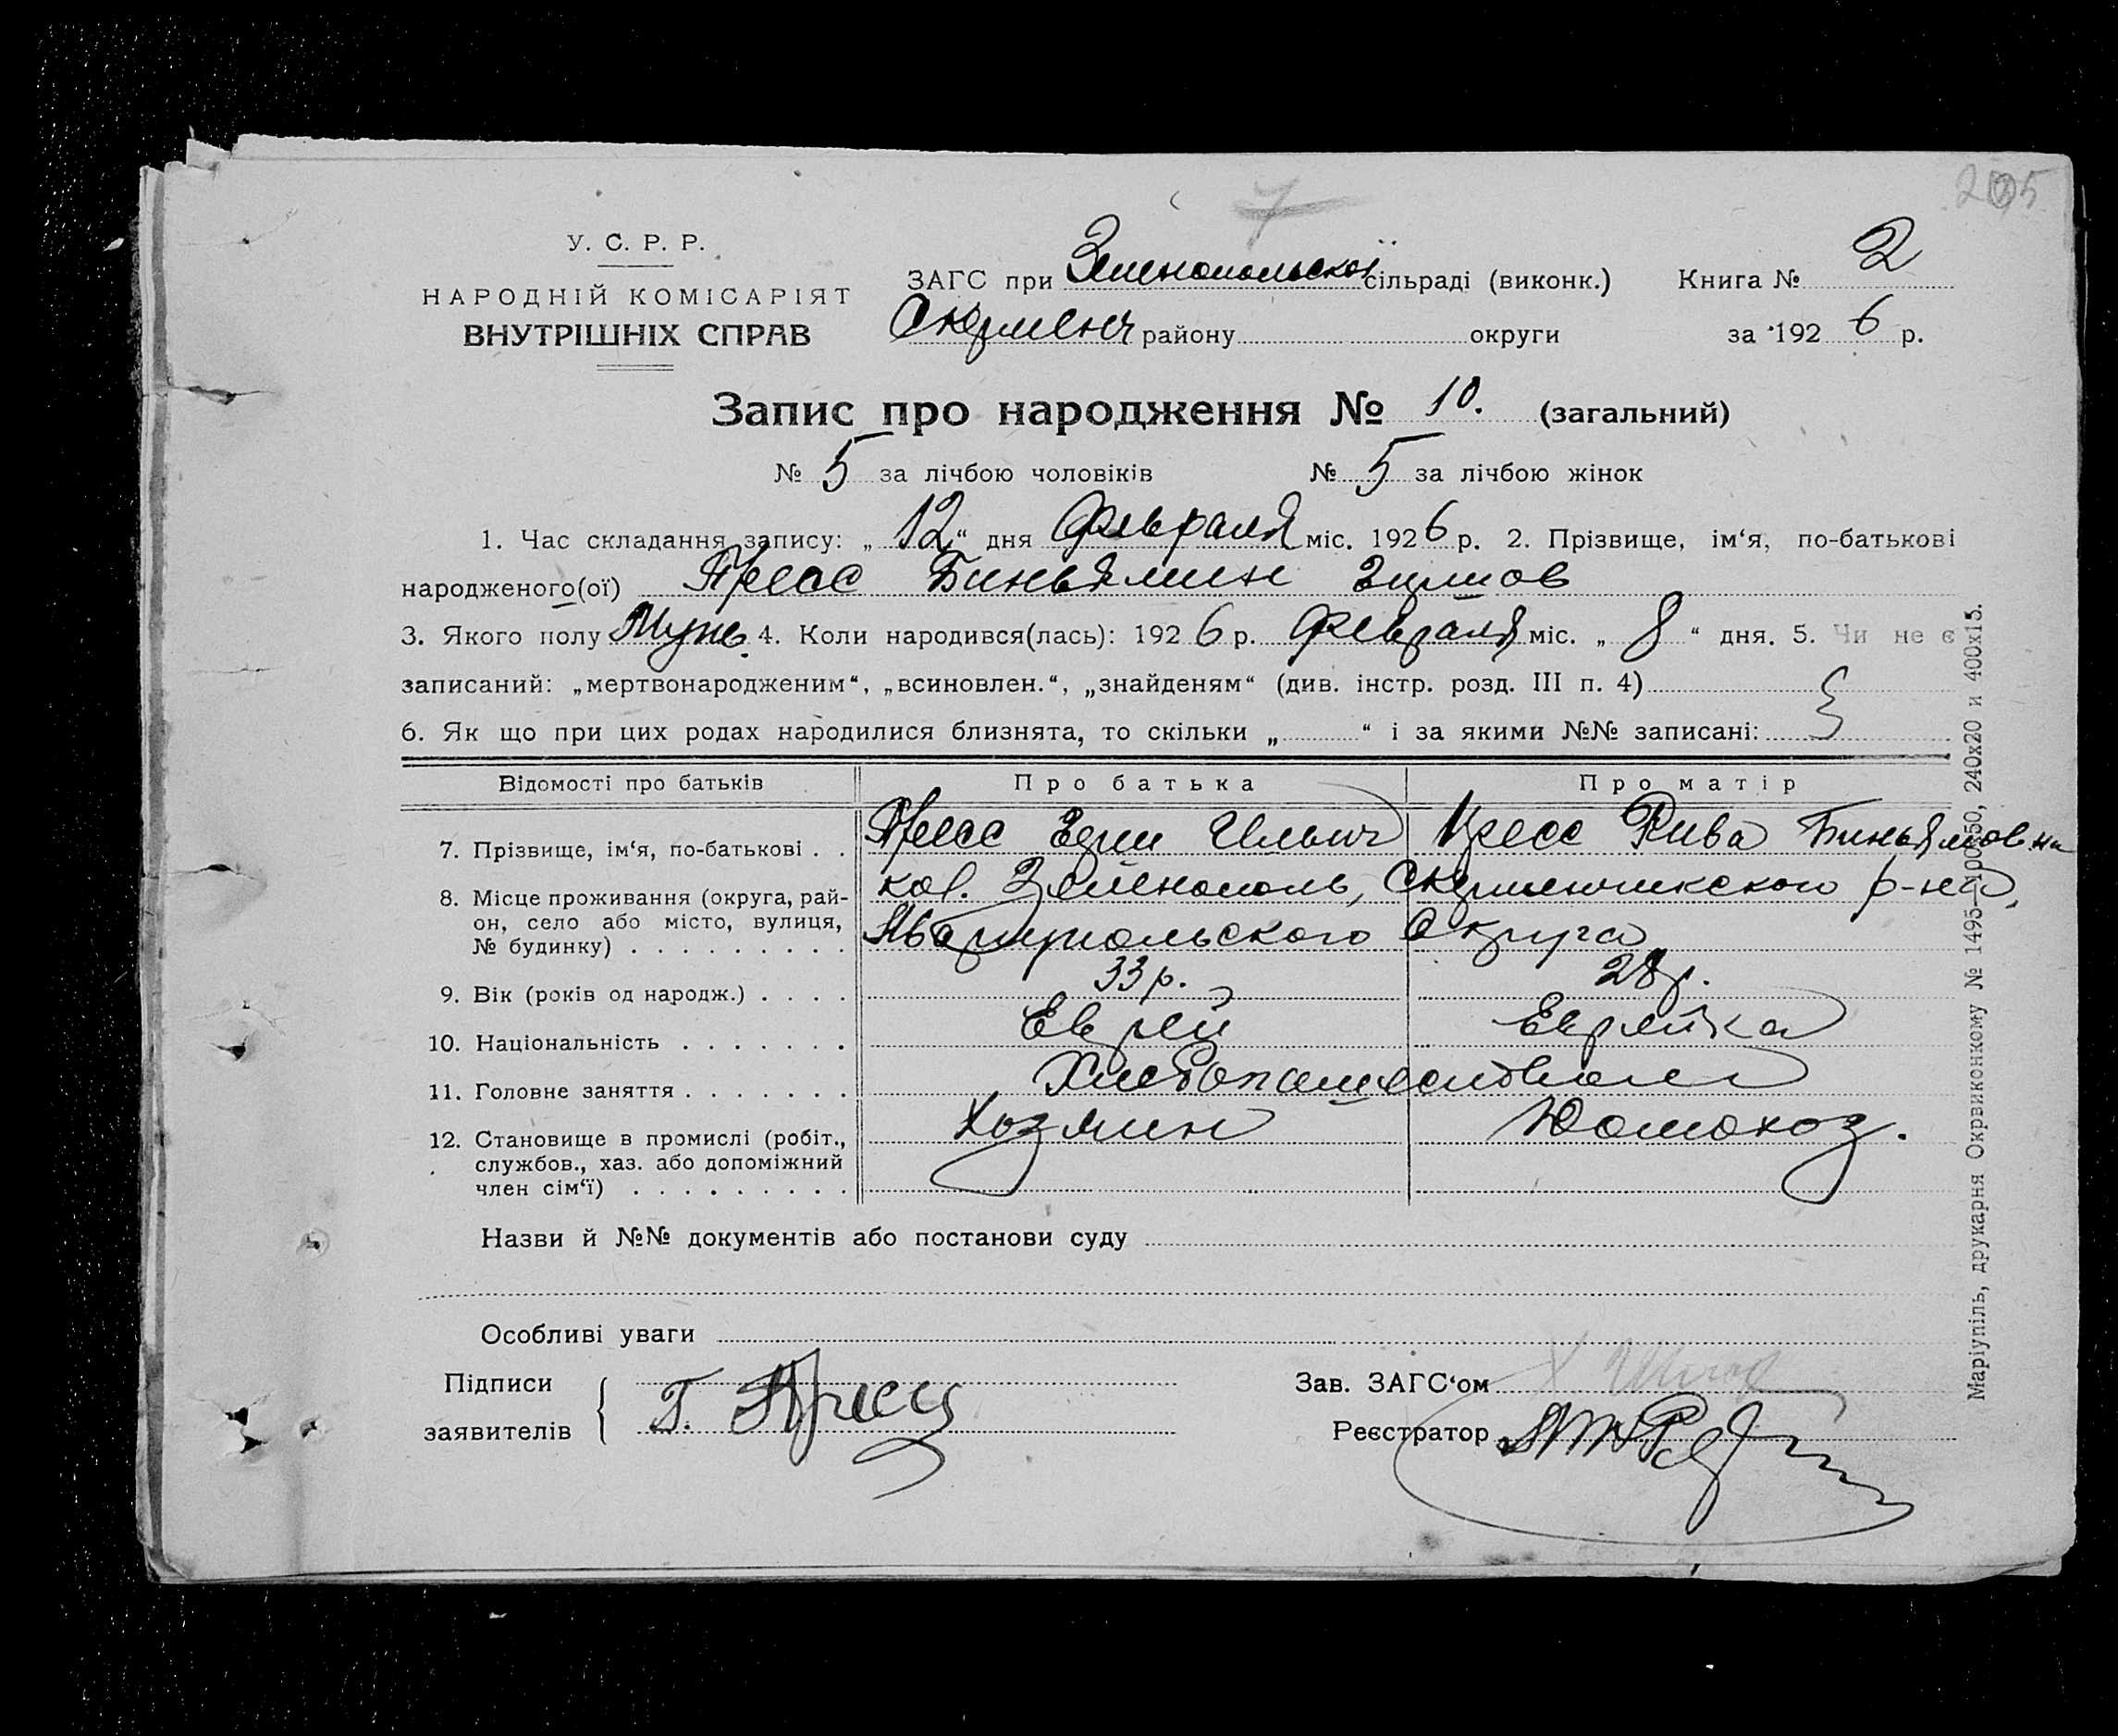 205
7
У. С. Р. Р.
НАРОДНІЙ КОМІСАРІЯТ
ВНУТРІШНІХ СПРАВ
ЗАГС при Зеленопольскої сільраді (виконк.) Книга № 2
району округи за 192 6 р.
Запис про народження № 10. (загальний)
№ 5 за лічбою чоловіків № 5 за лічбою жінок
1. Час складання запису: „ 12 “ дня Февраля міс. 192 6 р. 2. Прізвище, ім‘я, по-батькові
народженого(ої) Пресс Биньямин
3. Якого полу Муж. 4. Коли народився(лась): 192 6 р. Февраля міс. „ 8 “ дня. 5. Чи не є
записаний: „мертвонародженим“, „всиновлен.“, „знайденям“ (див. інстр. розд. III п. 4)
6. Як що при цих родах народилися близнята, то скільки „ “ і за якими №№ записані:
Відомості про батьків Про батька Про матір
7. Прізвище, ім‘я, по-батькові . . Пресс Ильич Пресс Рива Биньямовна
8. Місце проживання (округа, рай- кол. Зеленополь, р-на,
он, село або місто, вулиця, Мариупольского Округа
№ будинку) . . . . . . . . .
9. Вік (років од народж.) . . . . 33 р. 28 р.
10. Національність . . . . . . . Еврей Еврейка
11. Головне заняття . . . . . . . Хлебопашество
12. Становище в промислі (робіт., Хозяин Домохоз.
службов., хаз. або допоміжний
член сім‘ї) . . . . . . . . .
Назви й №№ документів або постанови суду
Особливі уваги
Підписи
заявителів Г. Пресс
Зав. ЗАГС‘ом
Реєстратор
Маріупіль, друкарня Окрвиконкому № 1495—100х50, 240х20 и 400х15.